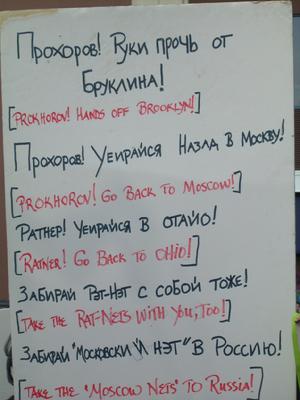 Прохоров! Руки прочь от
Бруклина!
[PROKHOROV! HANDS OFF BROOKLYN!]
Прохоров! Уеирайся Назад в Москву!
[PROKHOROV! GO BACK TO MOSCOW!]
Ратнер! Уеирайся в отайо!
[RATNER! GO BACK TO OHIO!]
Забирай Рэт-Нэт с собой тоже!
[TAKE THE RAT-NETS WITH YOU, TOO!]
Забирай "Московски"Л НЭТ" в Россию!
[TAKE THE "MOSCOW NETS" TO RUSSIA!]